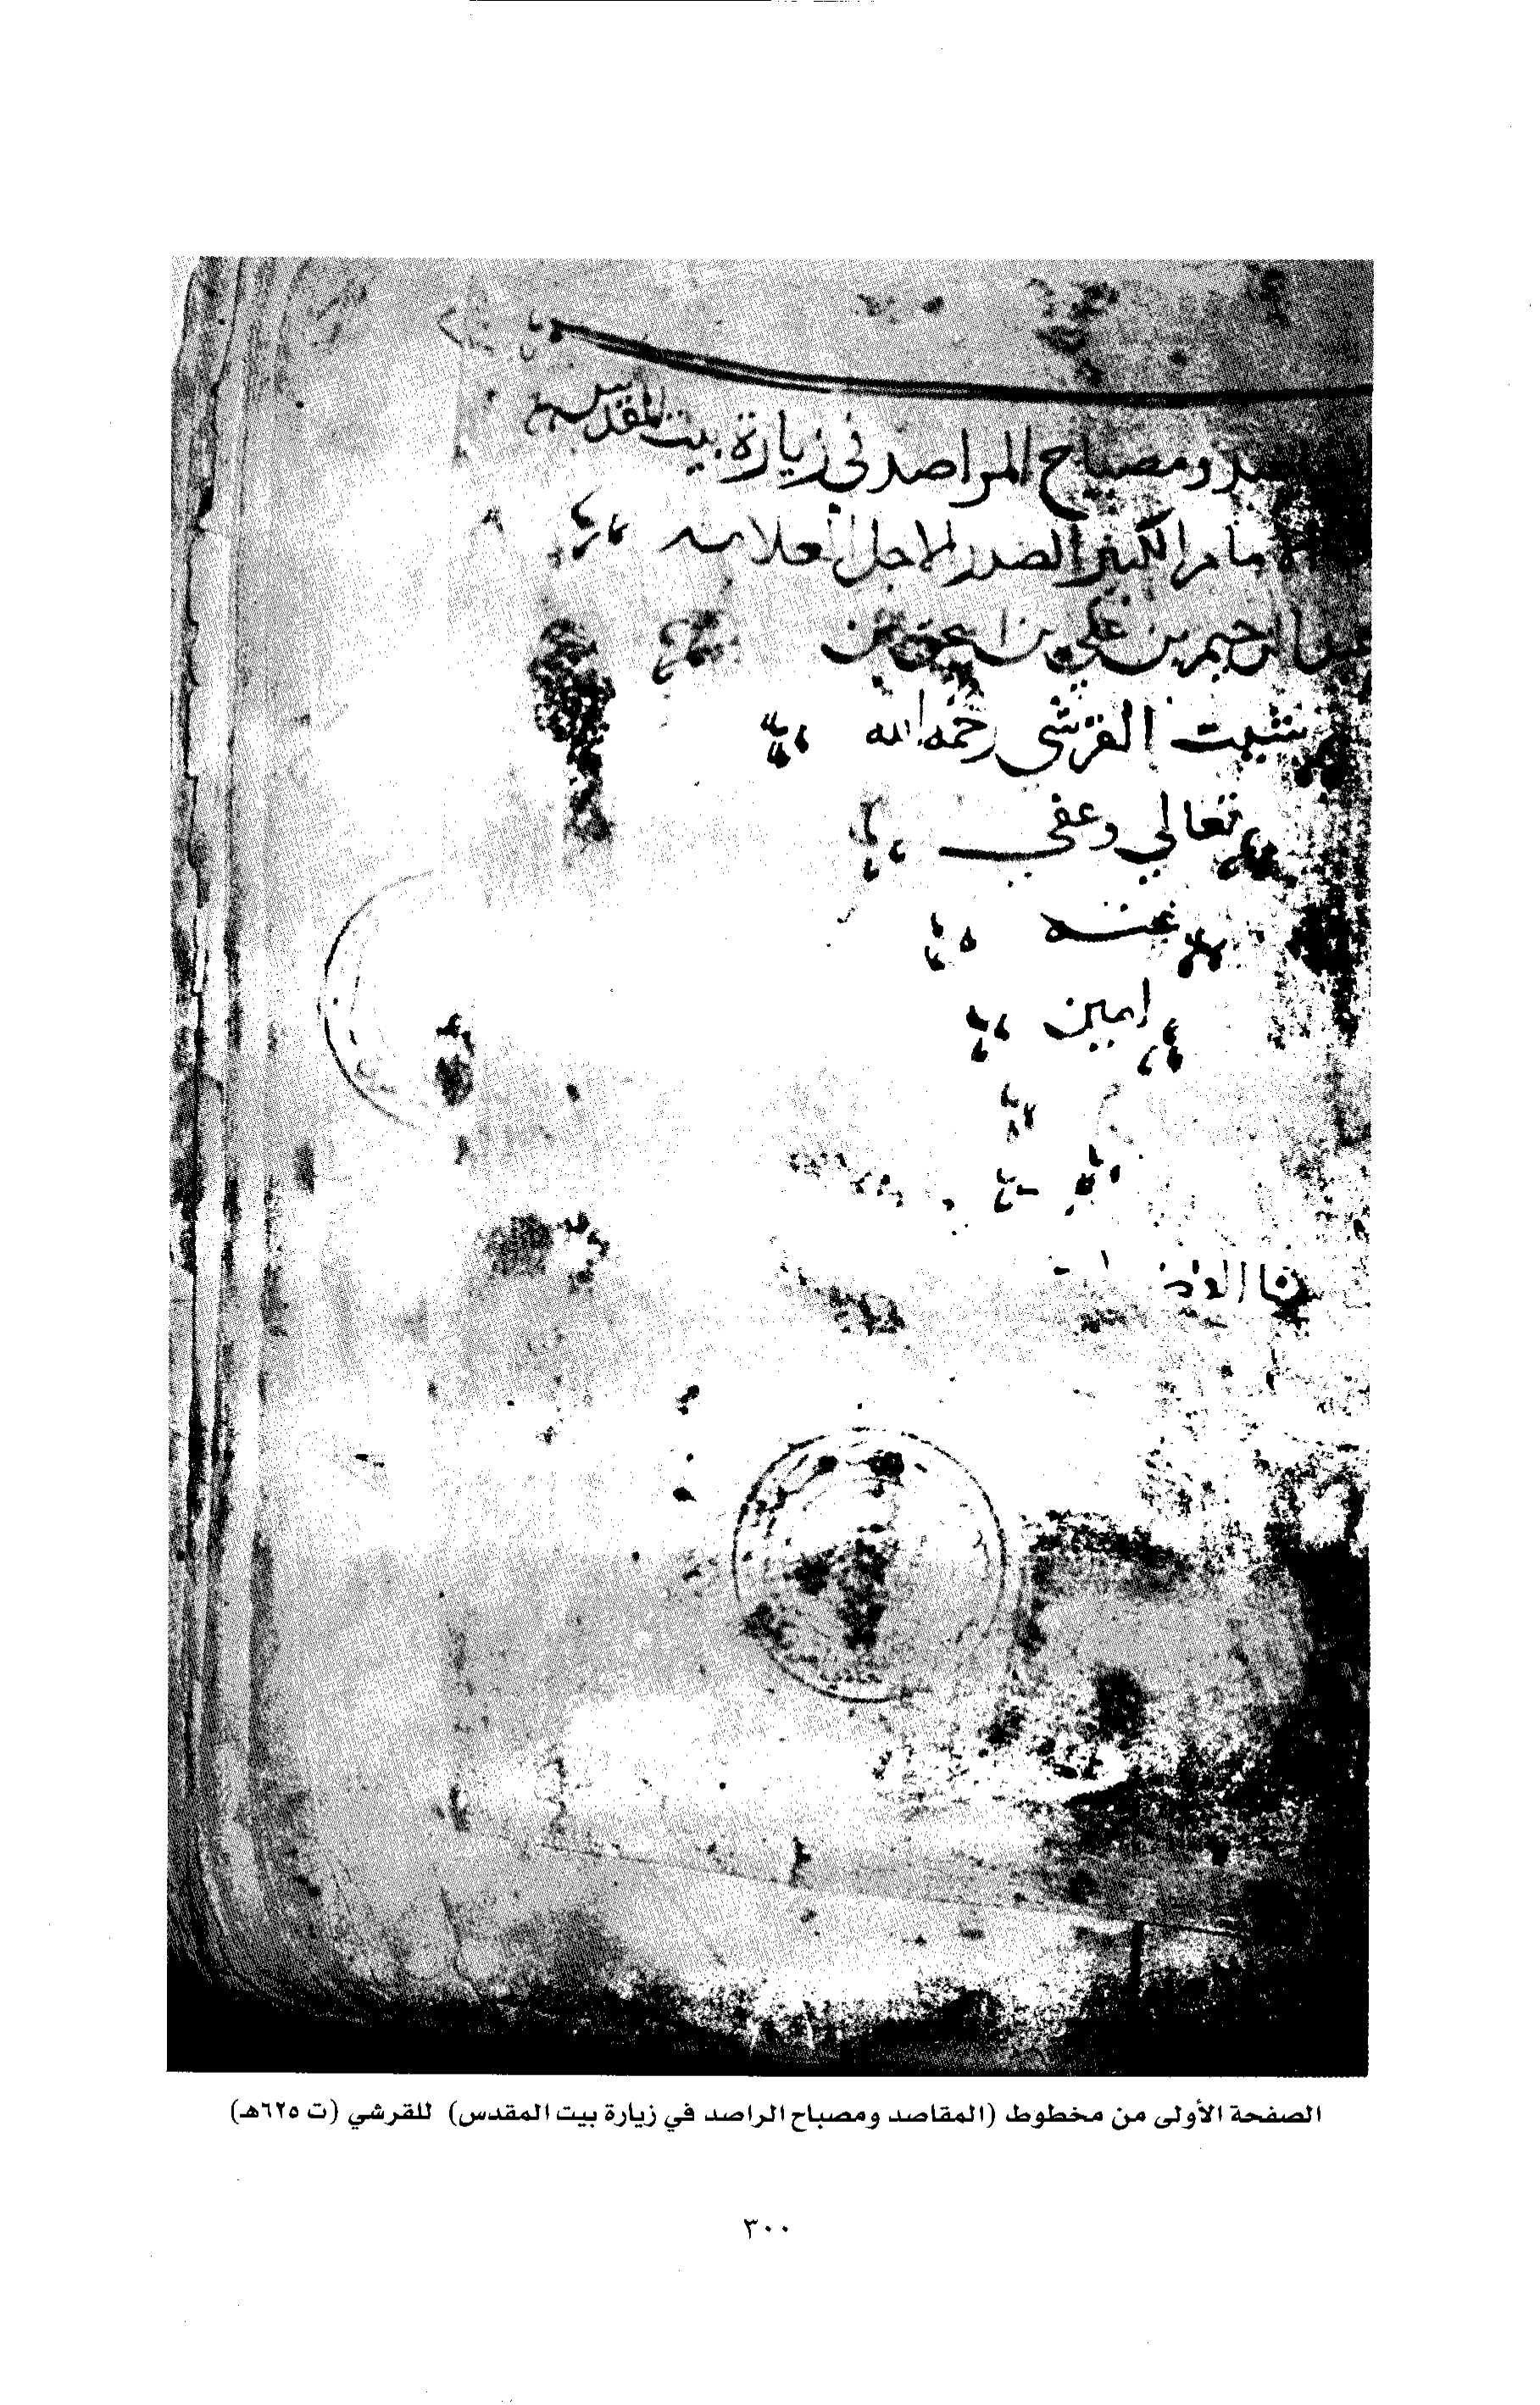 ومصباح المراصد في زيارة بيت المقدس
الكبير الصدر الاجل العلامه
الرحيم بن علي بن
شيت القرشي رحمه الله
تعالي وعفي
عنه
امين
الصفحة الأولى من مخطوط (المقاصد ومصباح الراصد في زيارة بيت المقدس) للقرشي (ت ٦٢٥هـ)
٣٠٠